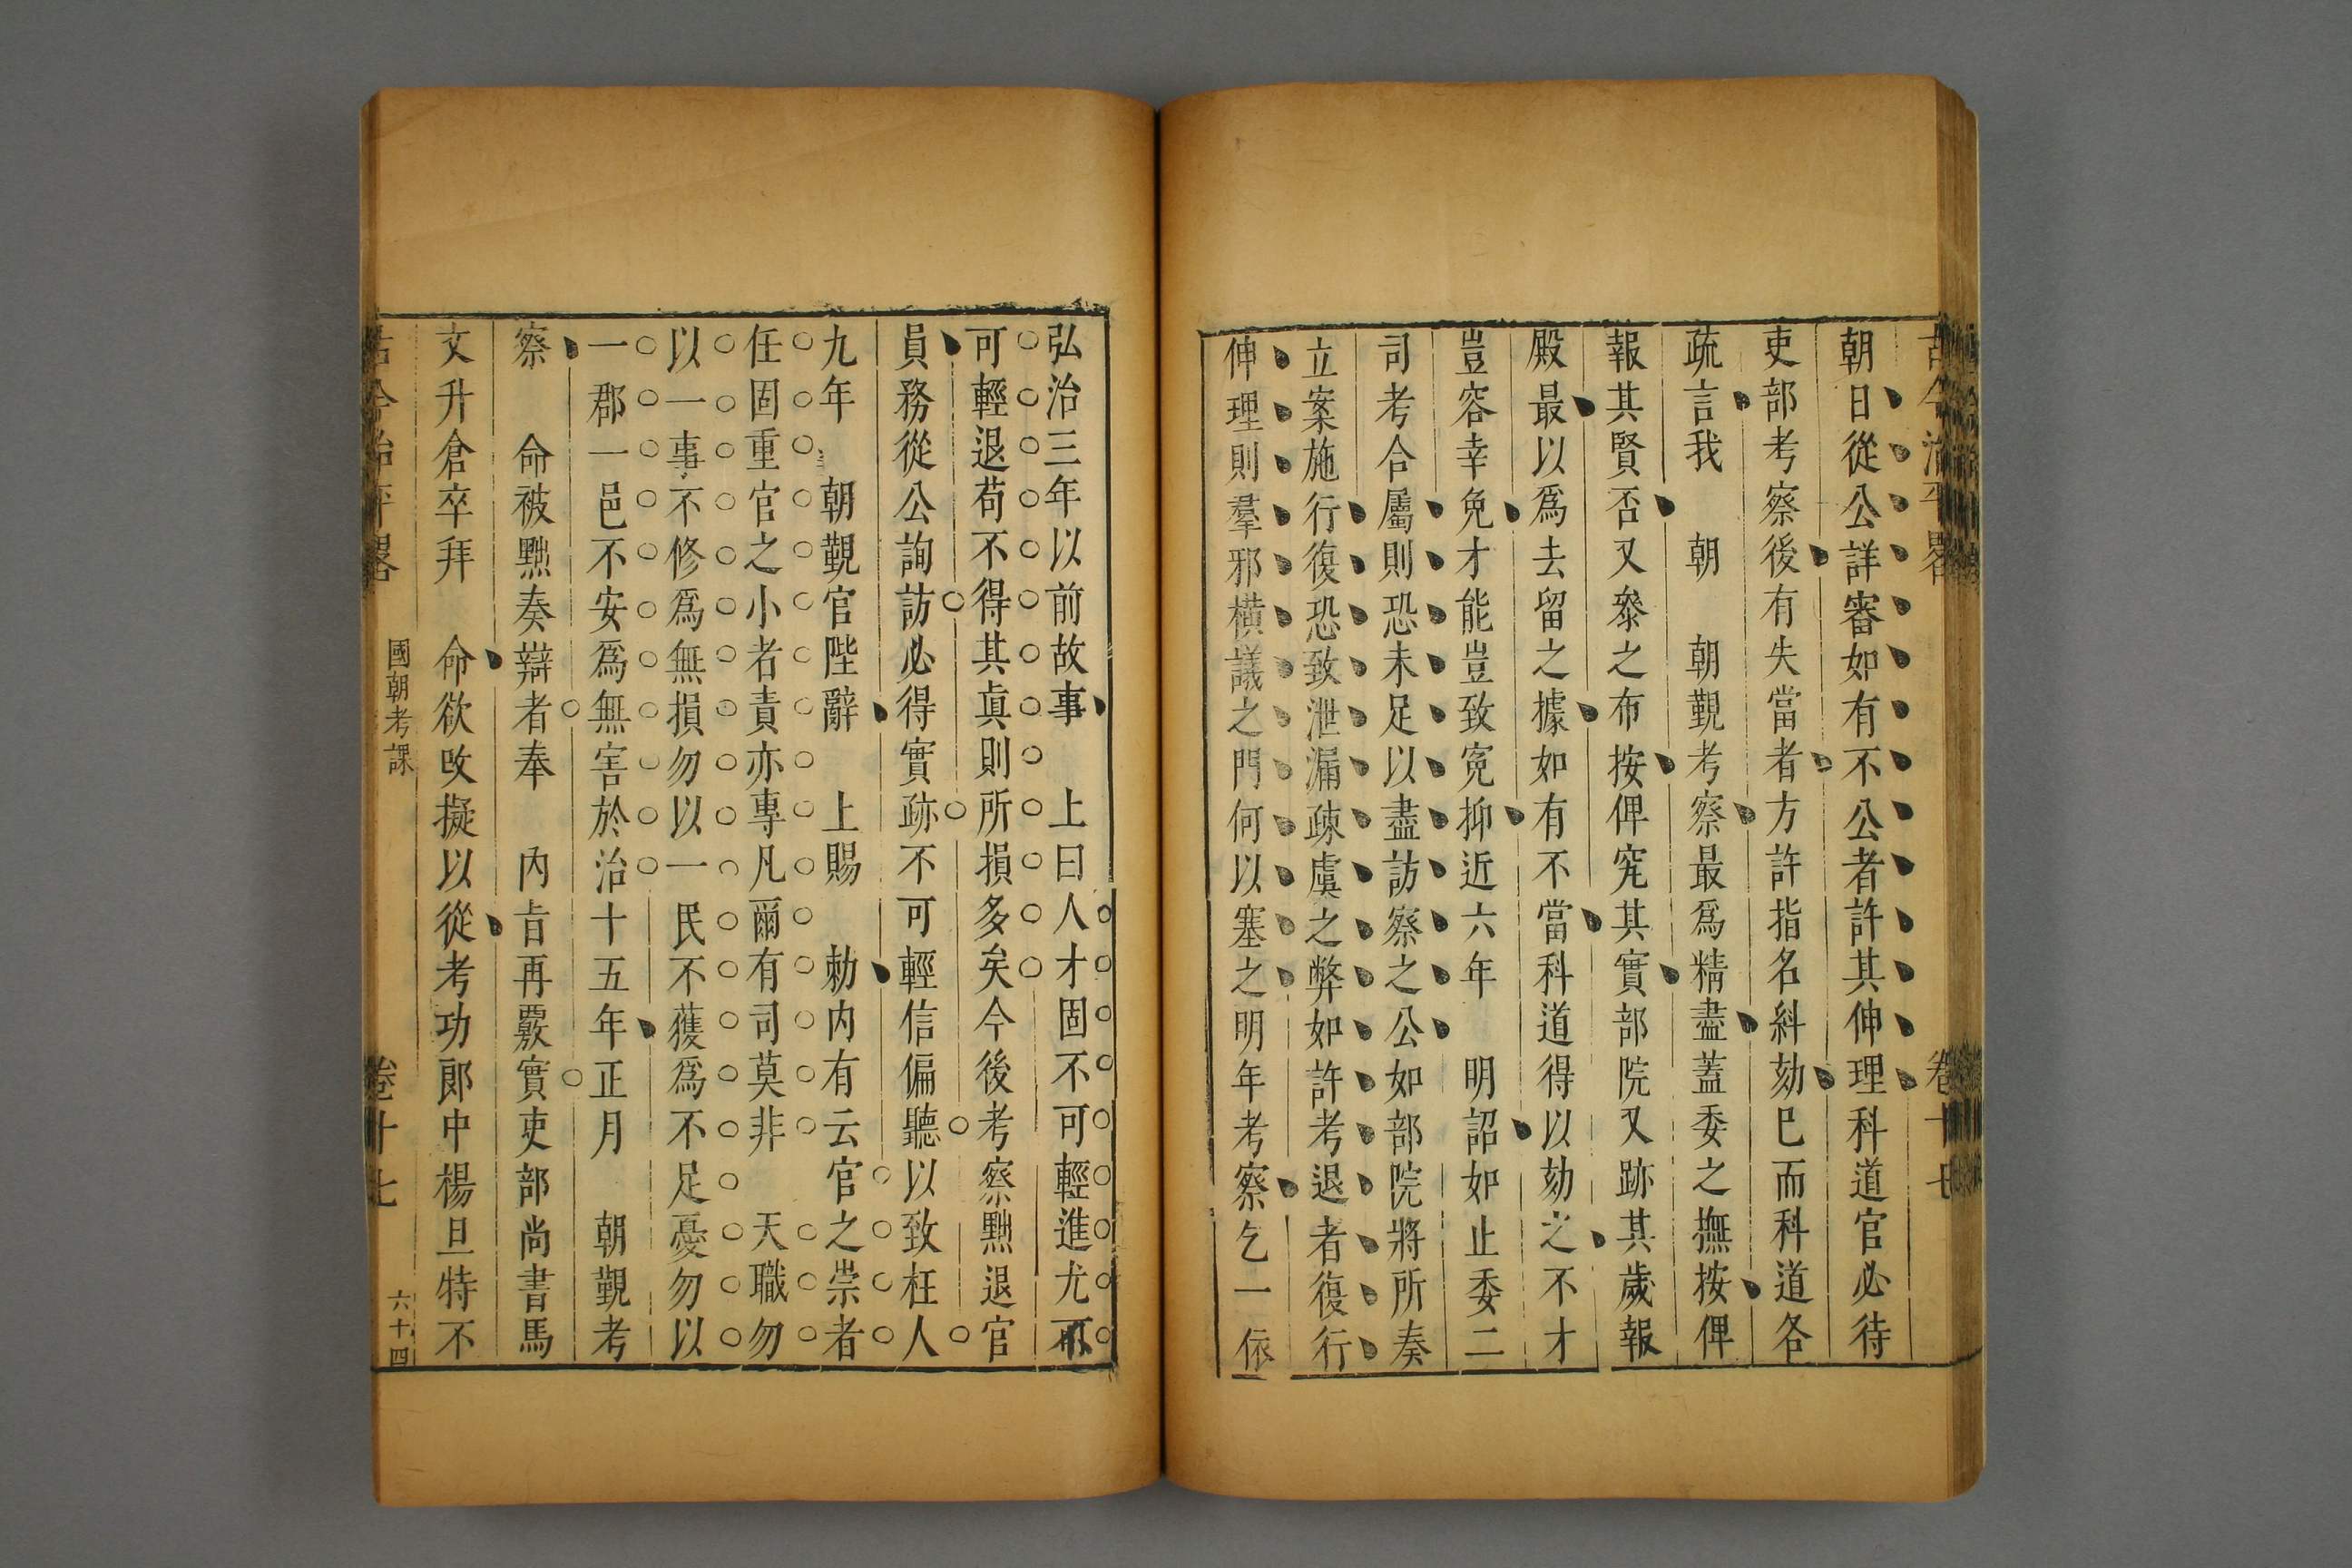 古今治平畧
卷十七
朝日從公詳審如有不公者許其伸理科道官必待
吏部考察後有失當者方許指名糾劾巳而科道各
疏言我 朝 朝覲考察最爲精盡蓋委之撫按俾
報其賢否又叅之布按俾究其實部院又跡其歲報
殿最以爲去留之據如有不當科道得以劾之不才
豈容幸免才能豈致寃抑近六年 明詔如止委二
司考合屬則恐未足以盡訪察之公如部院將所奏
立案施行復恐致泄漏疎虞之弊如許考退者復行
伸理則羣邪橫議之門何以塞之明年考察乞一依
弘治三年以前故事 上曰人才固不可輕進尤不
可輕退苟不得其眞則所損多矣今後考察黜退官
員務從公詢訪必得實跡不可輕信偏聽以致枉人
九年 朝覲官陛辭 上賜 勅内有云官之崇者
任固重官之小者責亦專凡爾有司莫非 天職勿
以一事不修爲無損勿以一民不獲爲不足憂勿以
一郡一邑不安爲無害於治十五年正月 朝覲考
察 命被黜奏辯者奉 内旨再覈實吏部尚書馬
文升倉卒拜 命欲改擬以從考功郎中楊旦特不
古今治平畧
國朝考課
卷十七
六十四